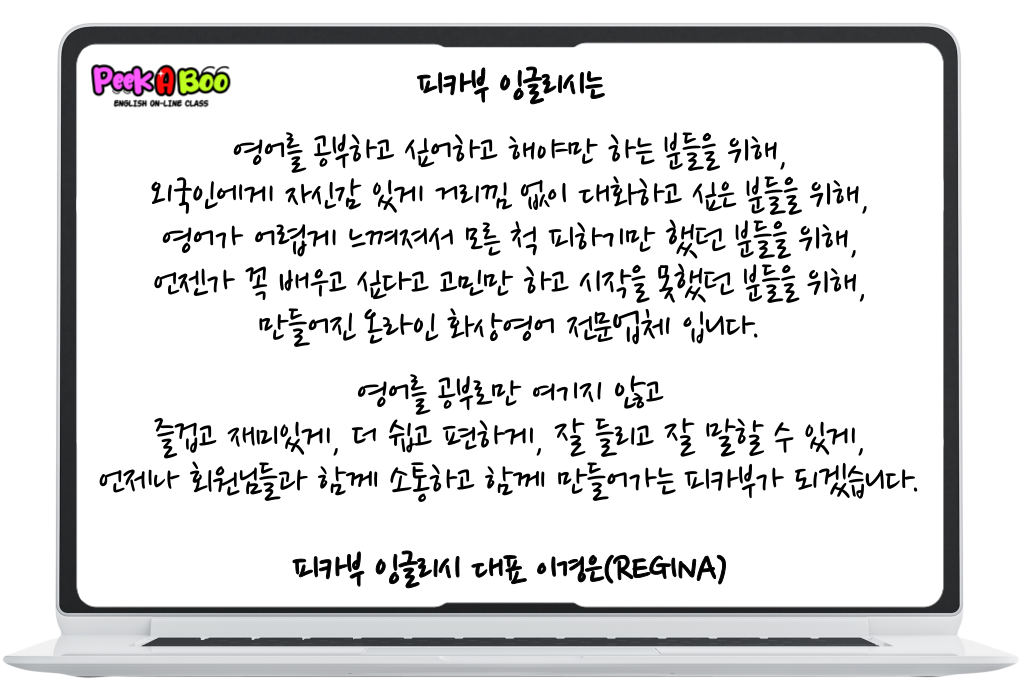 PeekABoo
ENGLISH ON-LINE CLASS
피카부 잉글리시는
영어를 공부하고 싶어하고 해야만 하는 분들을 위해,
외국인에게 자신감 있게 거리낌 없이 대화하고 싶은 분들을 위해,
영어가 어렵게 느껴져서 모른 척 피하기만 했던 분들을 위해,
언젠가 꼭 배우고 싶다고 고민만 하고 시작을 못했던 분들을 위해,
만들어진 온라인 화상영어 전문업체 입니다.
영어를 공부로만 여기지 않고
즐겁고 재미있게, 더 쉽고 편하게, 잘 들리고 잘 말할 수 있게,
언제나 회원님들과 함께 소통하고 함께 만들어가는 피카부가 되겠습니다.
피카부 잉글리시 대표 이경은(REGINA)